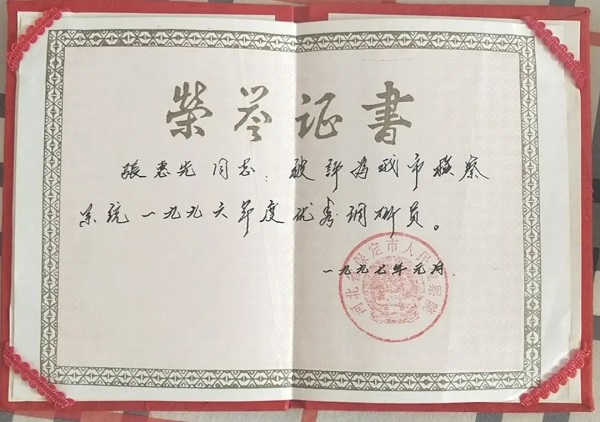 荣誉证书
张惠先同志：被评为我市检察
系统一九九六年度优秀调研员。
一九九七年元月
河北省保定市人民检察院